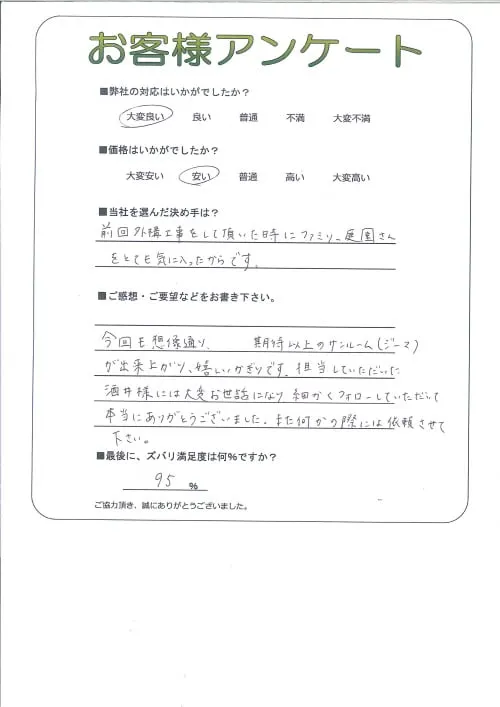 お客様アンケート
■弊社の対応はいかがでしたか?
大変良い 良い 普通 不満 大変不満
■価格はいかがでしたか?
大変安い 安い 普通 高い 大変高い
■当社を選んだ決め手は?
前回外構工事をして頂いた時にファミリー庭園さん
をとても気に入ったからです。
■ご感想・ご要望などをお書き下さい。
今回も想像通り、 期待以上のサンルーム(ジーマ)
が出来上がり、嬉しいかぎりです。担当していただいた
酒井様には大変お世話になり、細かくフォローしていただいて
本当にありがとうございました。また何かの際には依頼させて
下さい。
■最後に、ズバリ満足度は何%ですか?
95 %
ご協力頂き、誠にありがとうございました。